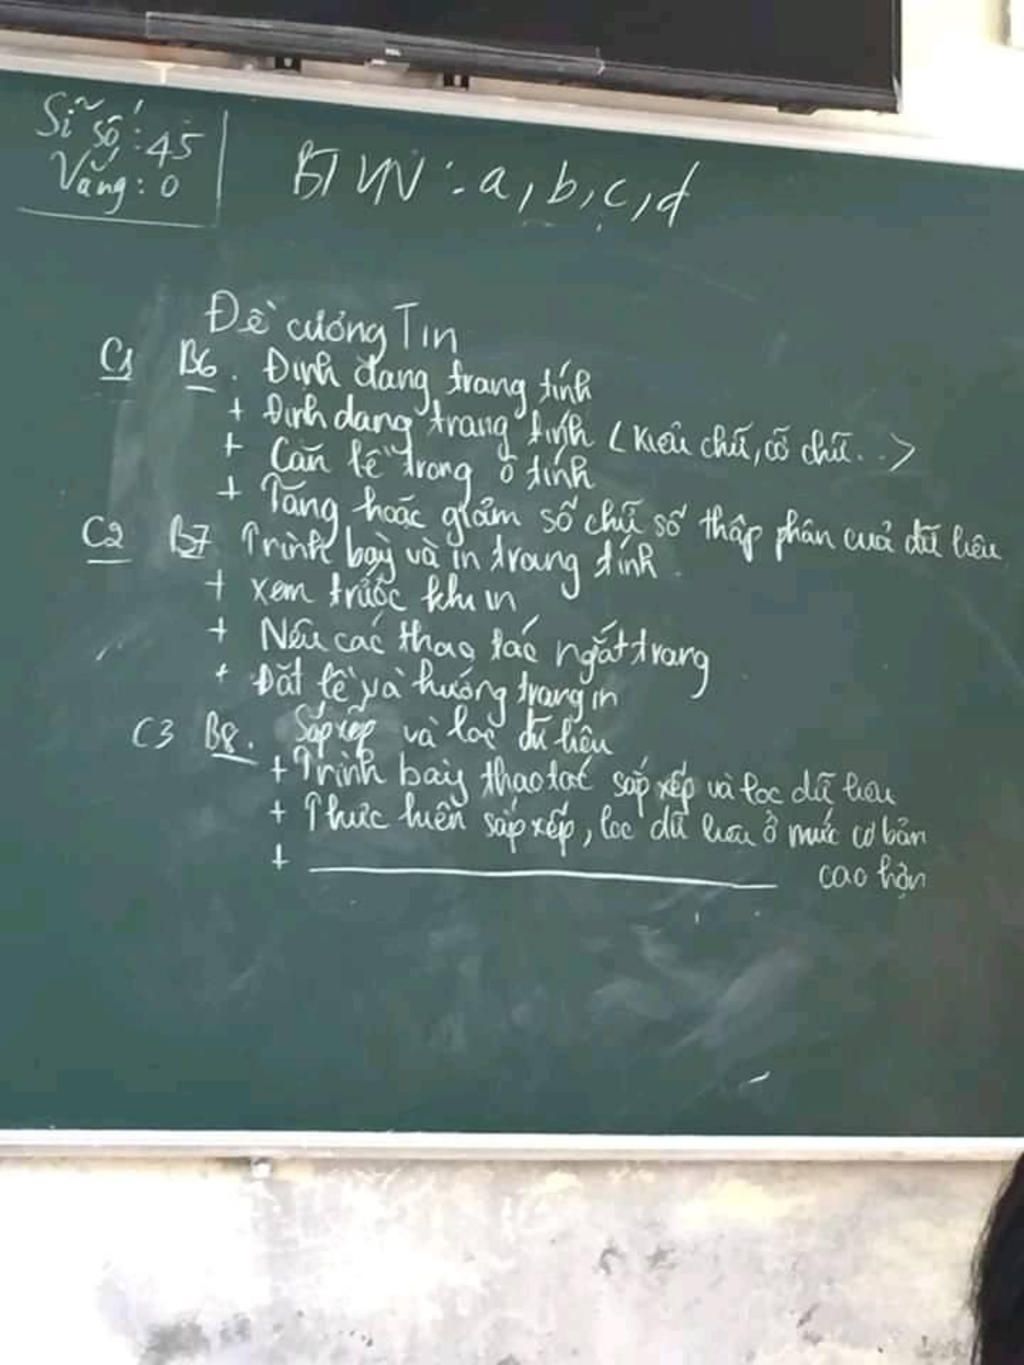 Sĩ số: 45
Vắng: 0
BTVN: a, b, c, d
Đề cương Tin
C1 B6. Định dạng trang tính
+ Định dạng trang tính (kiểu chữ, cỡ chữ...)
+ Căn lề trong ô tính
+ Tăng hoặc giảm số chữ số thập phân của dữ liệu
C2 B7 Trình bày và in trang tính
+ xem trước khi in
+ Nêu các thao tác ngắt trang
+ Đặt lề và hướng trang in
C3 B8. Sắp xếp và lọc dữ liệu
+ Trình bày thao tác sắp xếp và lọc dữ liệu
+ Thực hiện sắp xếp, lọc dữ liệu ở mức cơ bản
+ ____________________ cao hơn